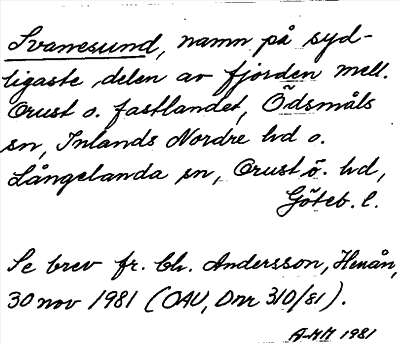 Svanesund, namn på syd-
ligaste delen av fjorden mell.
Orust o. fastlandet, Ödsmåls
sn, Inlands Nordre hd o.
Långelanda sn, Orust ö. hd,
Göteb. l.
Se brev fr. Ch. Andersson, Henån,
30 nov 1981 (OAU, Dnr 310/81).
A-MM 1981